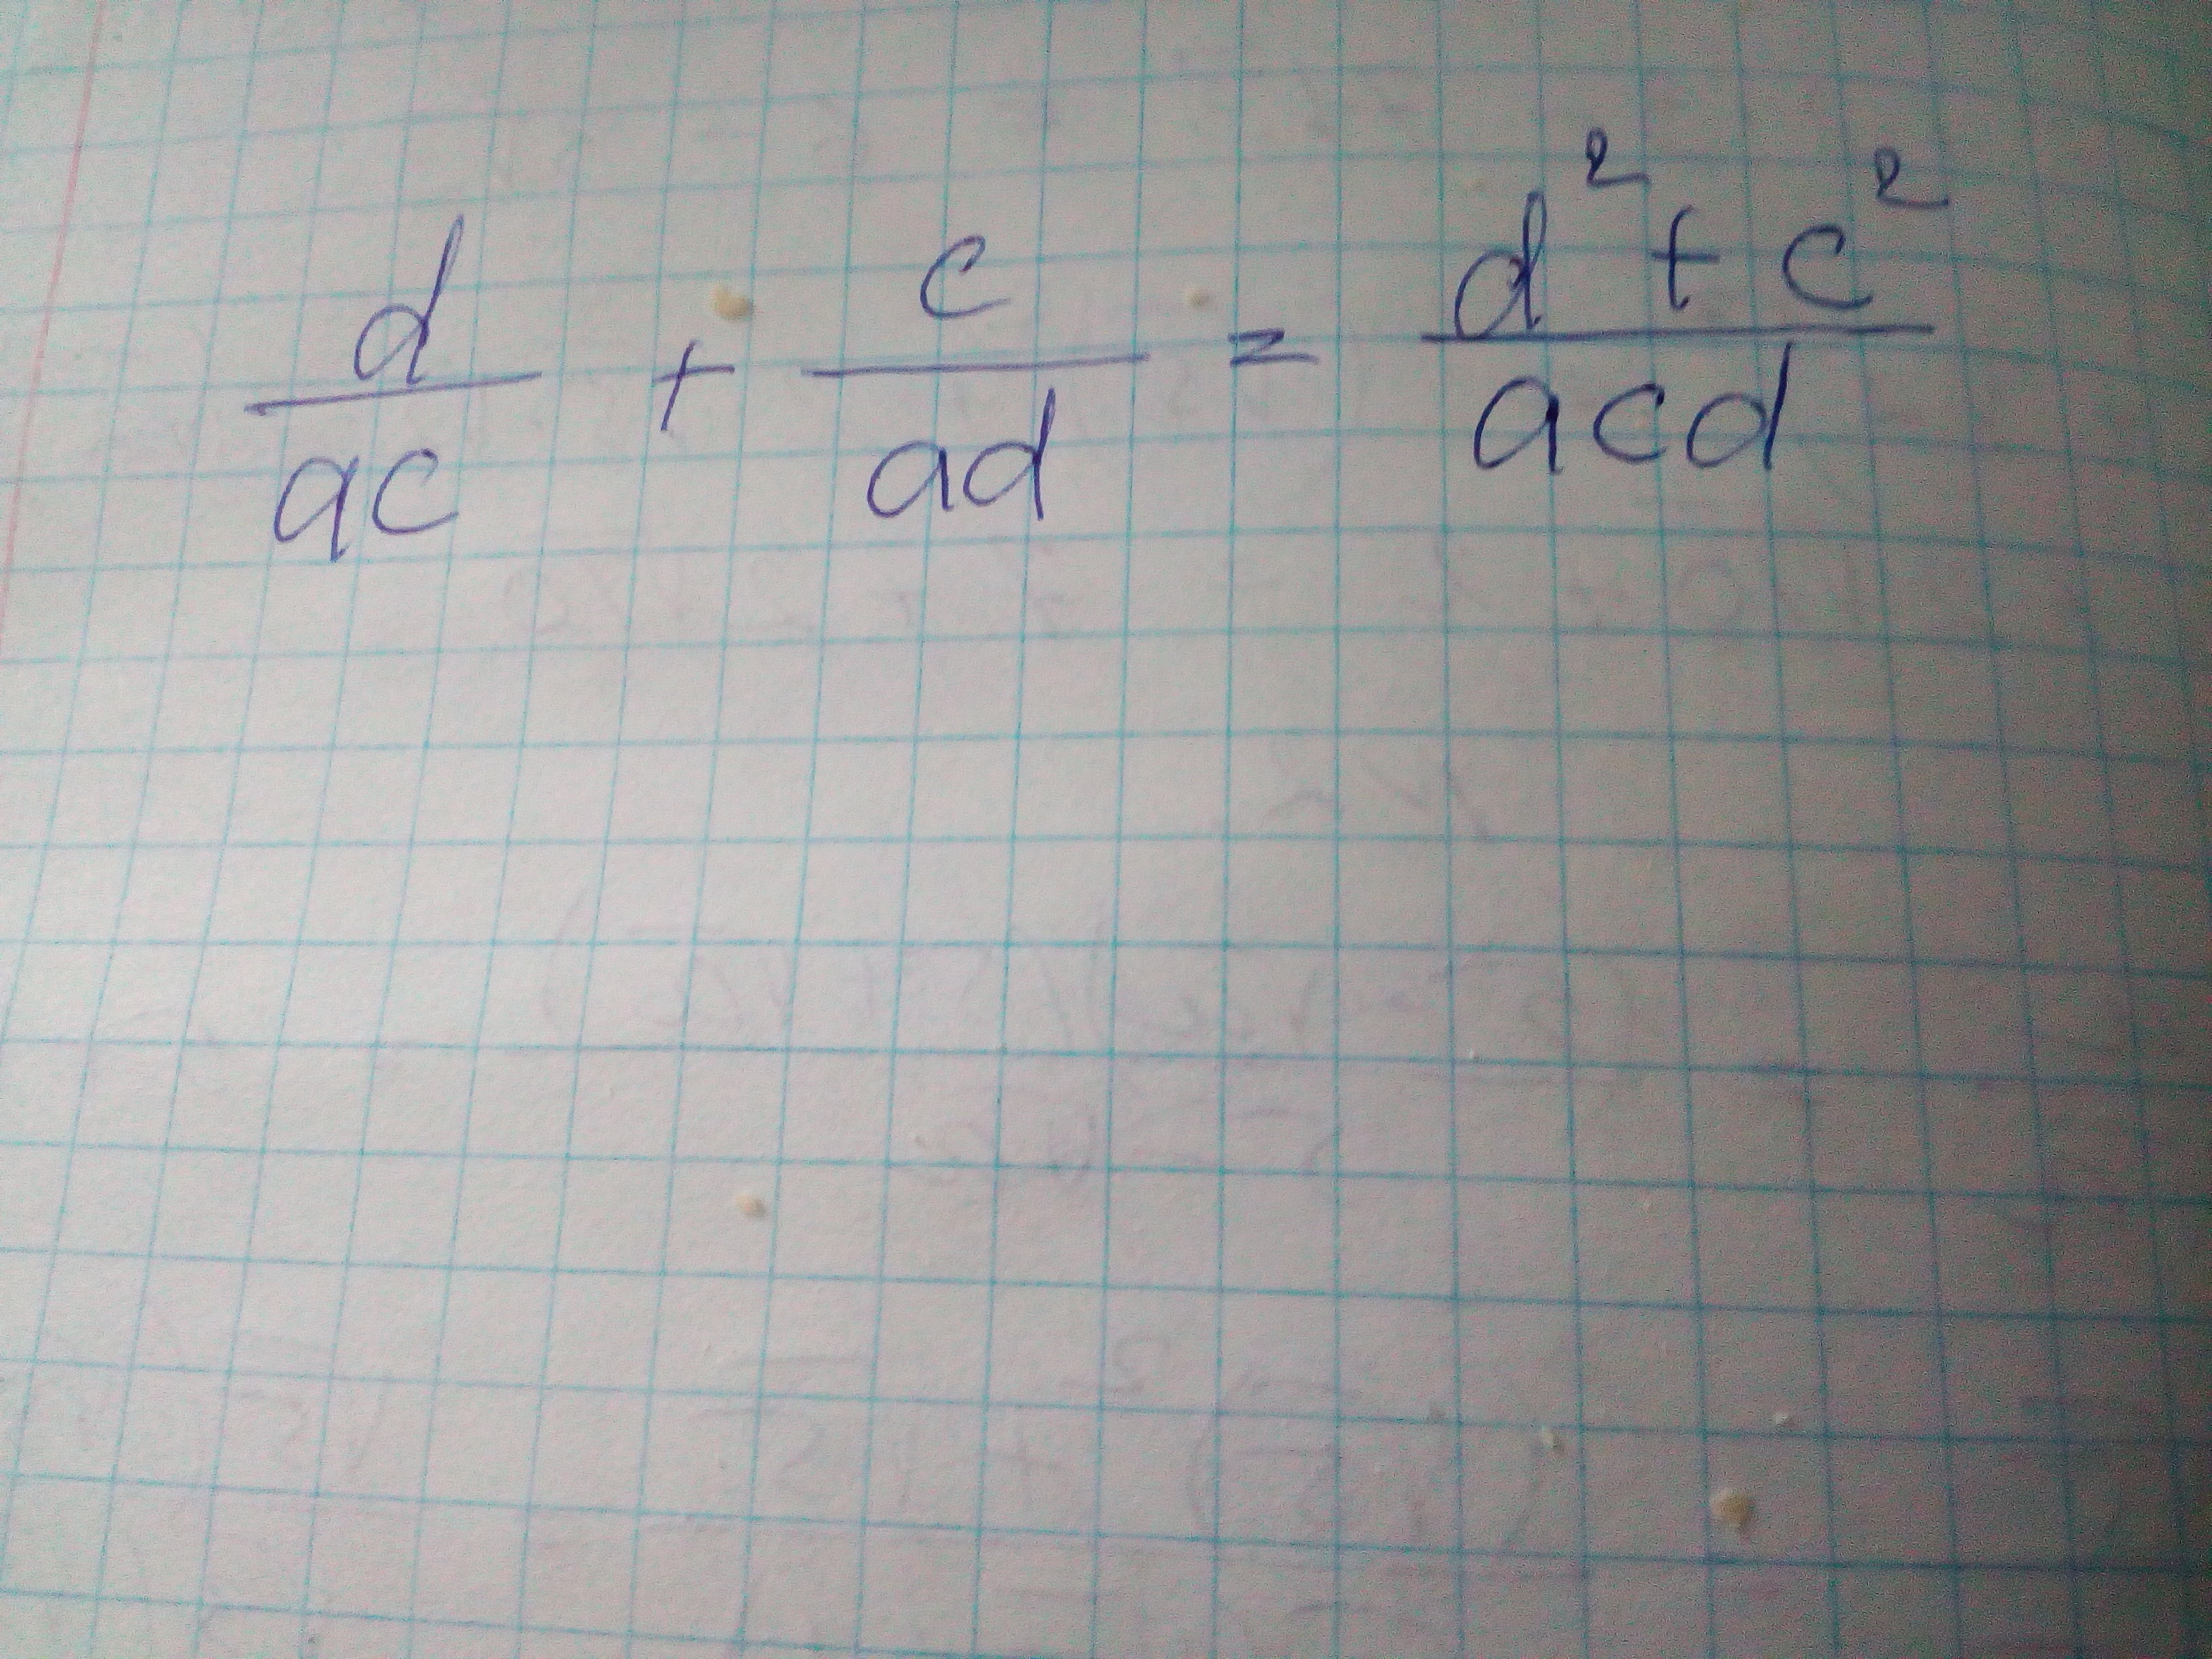 d/ac + c/ad = d² + c²/acd